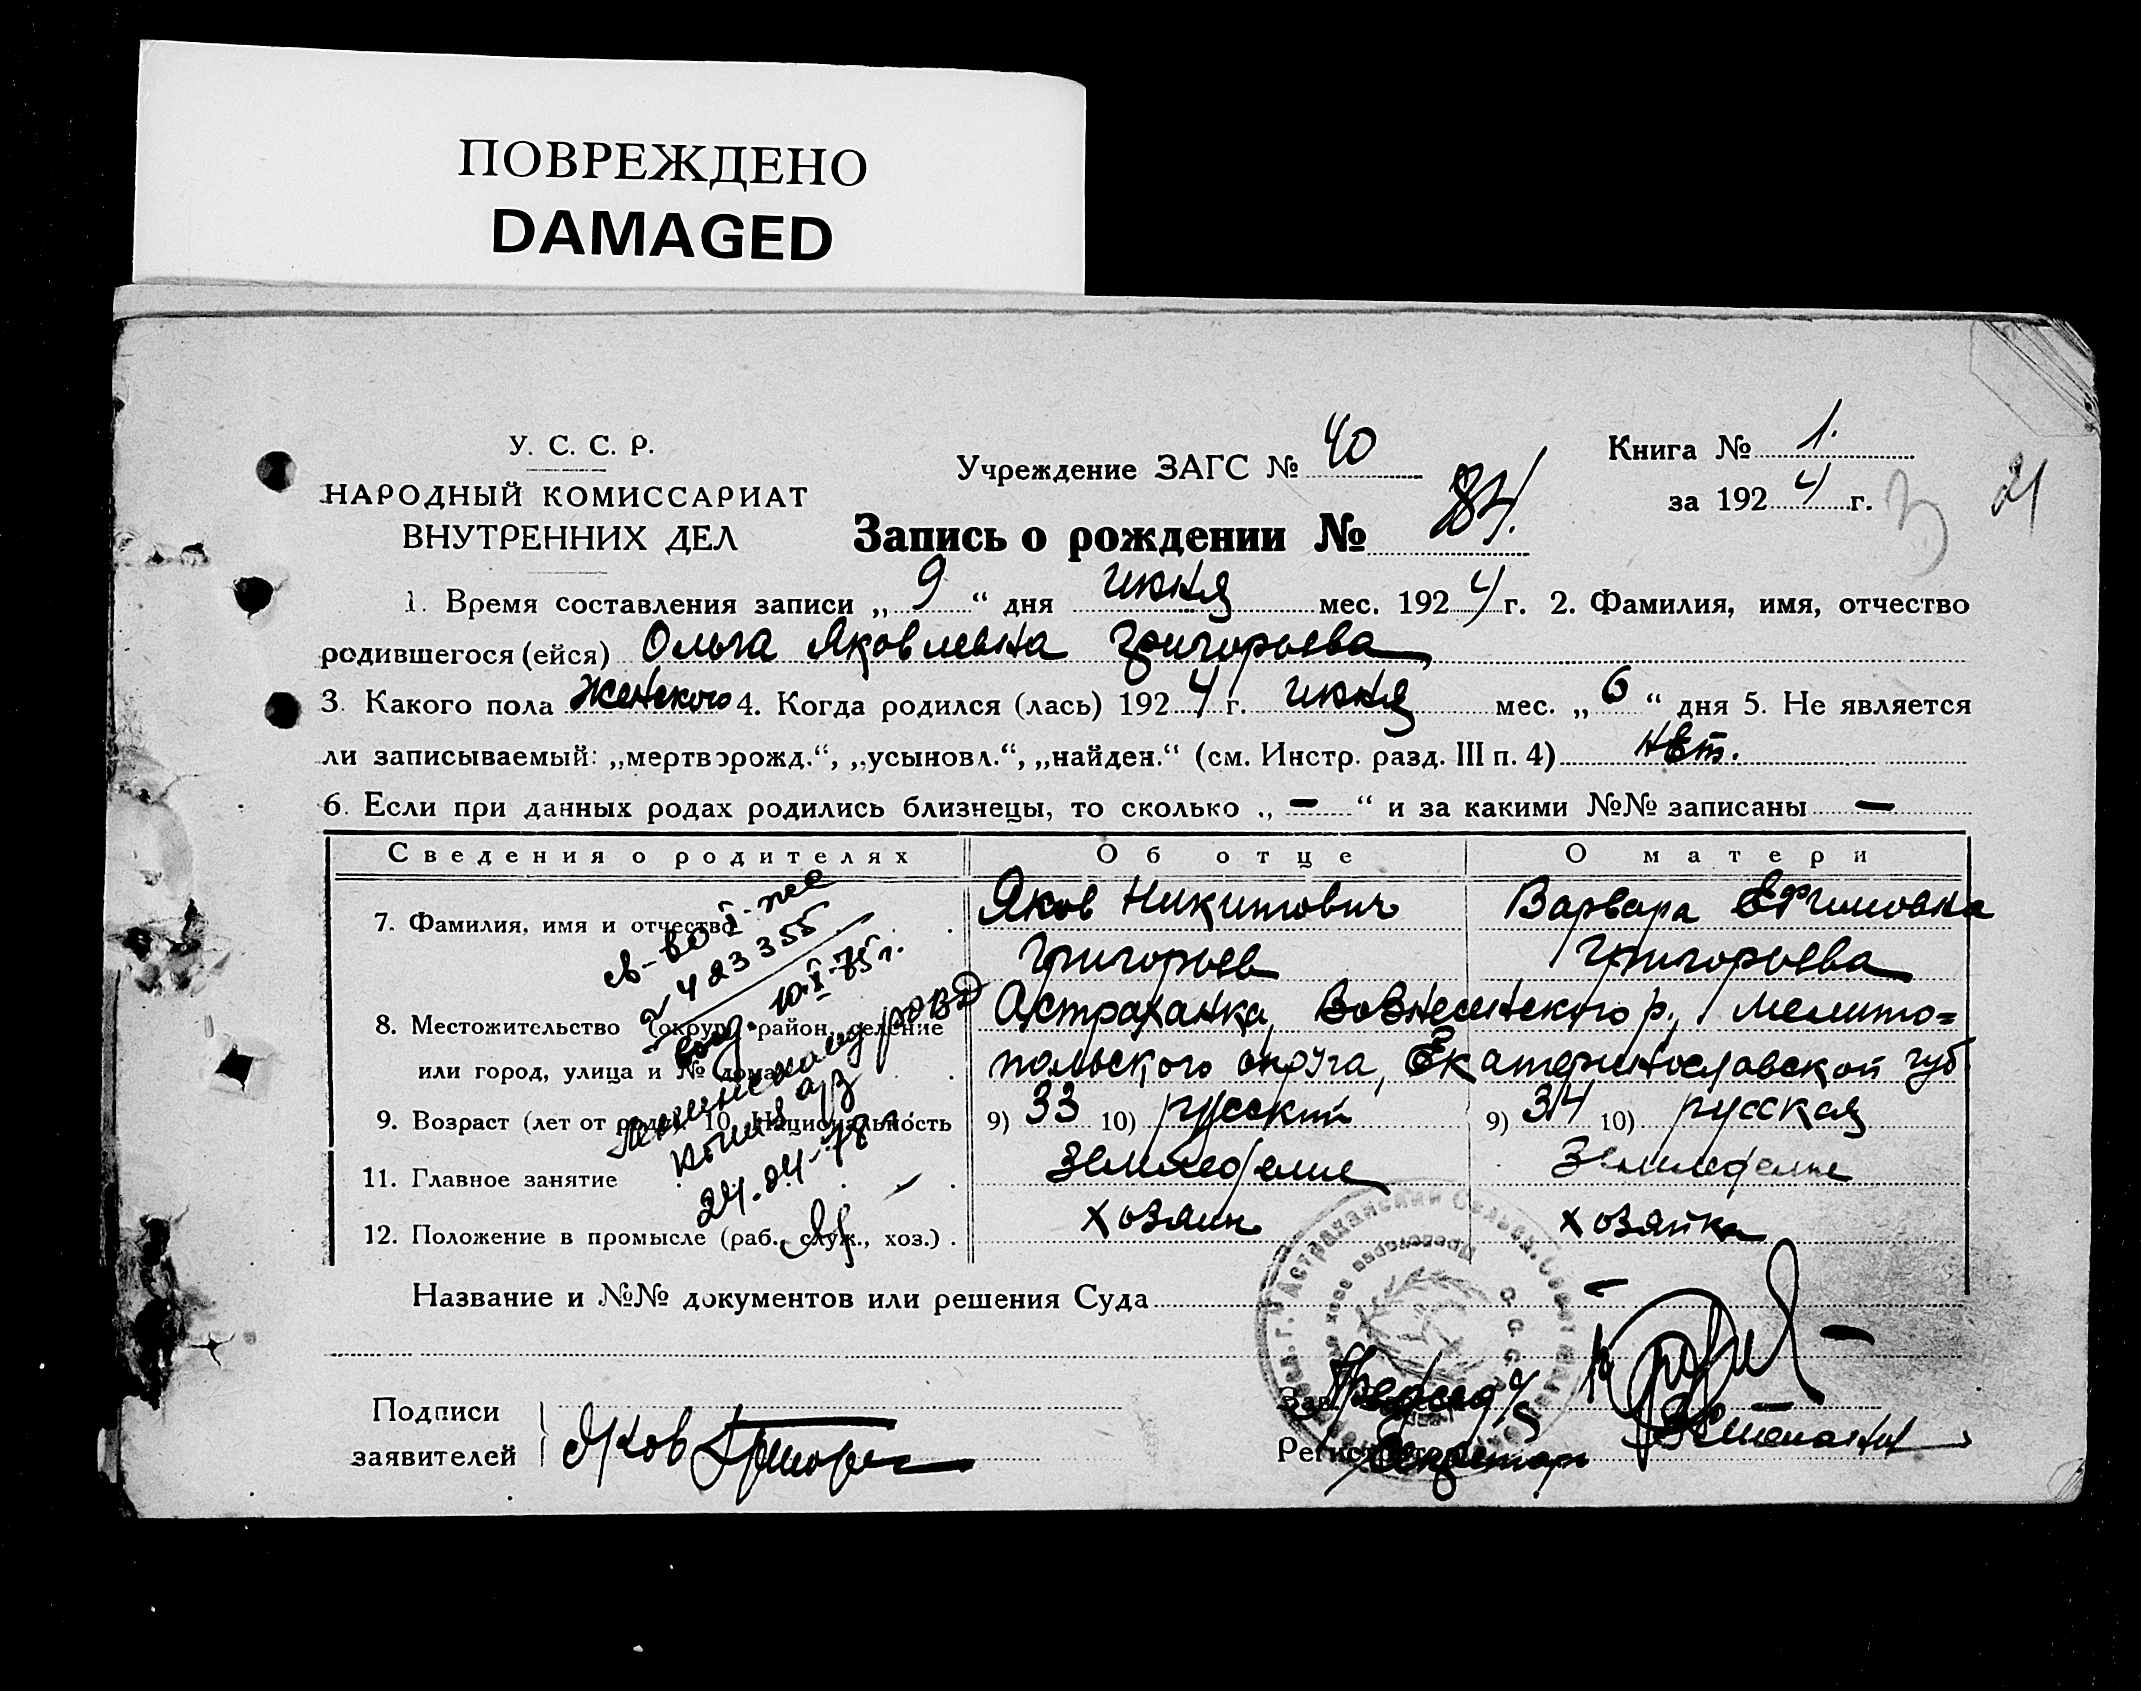 ПОВРЕЖДЕНО
DAMAGED
У. С. С. Р.
НАРОДНЫЙ КОМИССАРИАТ
ВНУТРЕННИХ ДЕЛ
Учреждение ЗАГС № 40
Книга № 1.
за 1924 г.
3 21
Запись о рождении № 84.
1. Время составления записи „ 9 “ дня июня мес. 1924 г. 2. Фамилия, имя, отчество
родившегося (ейся) Ольга Яковлевна Григорьева
3. Какого пола женского 4. Когда родился (лась) 1924 г. июня мес. „ 6 “ дня 5. Не является
ли записываемый: „мертворожд.“, „усыновл.“, „найден.“ (см. Инстр. разд. III п. 4) нет.
6. Если при данных родах родились близнецы, то сколько „ — “ и за какими №№ записаны —
Сведения о родителях Об отце О матери
7. Фамилия, имя и отчество Яков Никитович Варвара Ефимовна
Григорьев Григорьева
8. Местожительство (округ, район, селение Астраханка, Вознесенского р., Мелито=
или город, улица и № дома) польского округа, Екатеринославской губ
9. Возраст (лет от роду) 10. Национальность 9) 33 10) русский 9) 34 10) русская
11. Главное занятие Земледелие Земледелие
12. Положение в промысле (раб., служ., хоз.) хозяин хозяйка
св-во I-же
423355
10.X-75 г.
Название и №№ документов или решения Суда
Подписи
заявителей Яков Григорьев
Зав. Председ
Секретарь Степанин